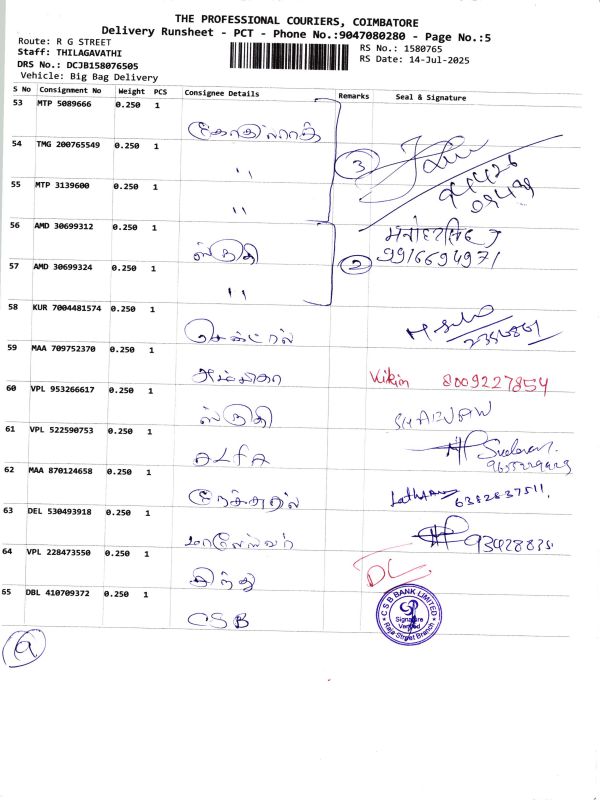 THE PROFESSIONAL COURIERS, COIMBATORE
Delivery Runsheet - PCT - Phone No.:9047080280 - Page No.:5
Route: R G STREET
Staff: THILAGAVATHI
DRS No.: DCJB158076505
Vehicle: Big Bag Delivery
RS No.: 1580765
RS Date: 14-Jul-2025
S No Consignment No Weight PCS Consignee Details Remarks Seal & Signature
53 MTP 5089666 0.250 1
54 TMG 200765549 0.250 1 " 3
55 MTP 3139600 0.250 1 "
56 AMD 30699312 0.250 1 ஸ்ருதி
57 AMD 30699324 0.250 1 " 2 9916694971
58 KUR 7004481574 0.250 1 சென்ட்ரல்
59 MAA 709752370 0.250 1 அம்பிகா Vikim 8009227854
60 VPL 953266617 0.250 1 ஸ்ருதி
61 VPL 522590753 0.250 1 ALFA
62 MAA 870124658 0.250 1 6382837511
63 DEL 530493918 0.250 1
64 VPL 228473550 0.250 1 இந்து DC
65 DBL 410709372 0.250 1 CSB
CSB BANK LIMITED
Signature Verified
Raja Street Branch